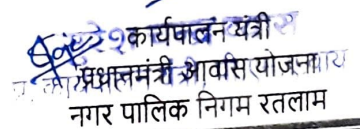 कार्यपालन यंत्री
प्रधानमंत्री आवास योजना
नगर पालिक निगम रतलाम